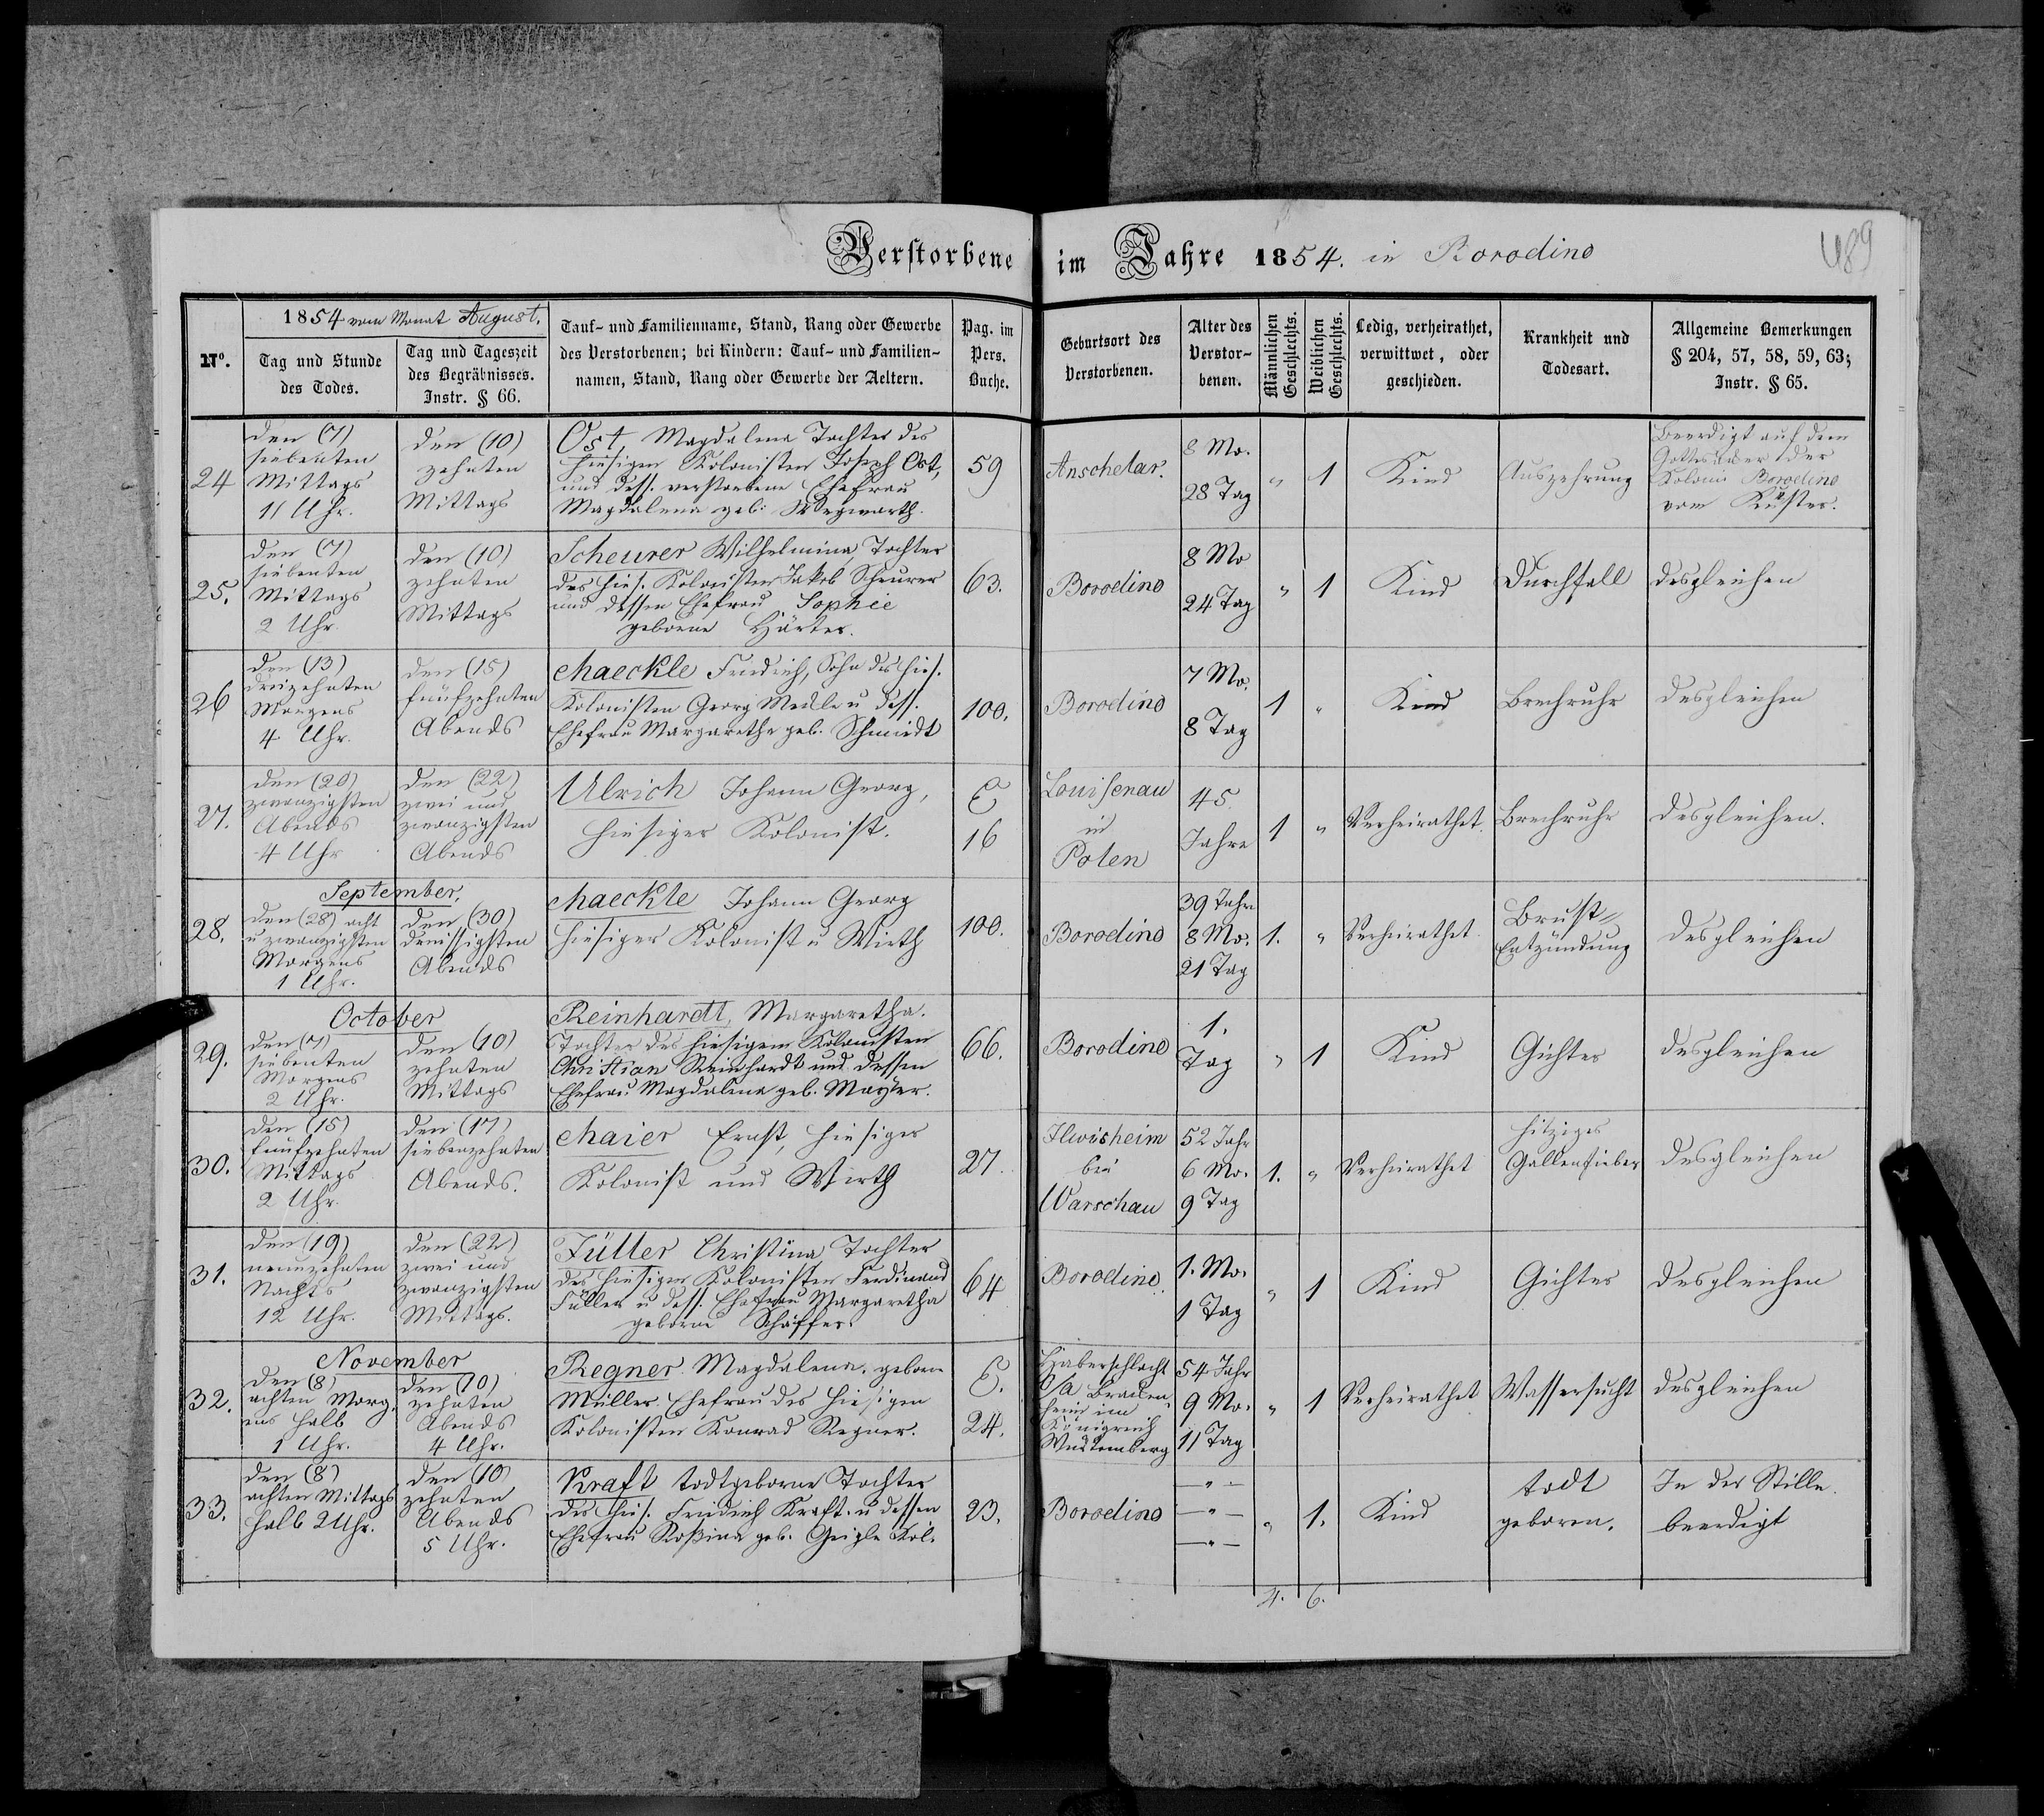 Verstorbene im Jahre 1854. in Borodino
489
No.
1854 vom Monat August.
Tag und Stunde
des Todes.
Tag und Tageszeit
des Begräbnisses.
Instr. § 66.
Tauf- und Familienname, Stand, Rang oder Gewerbe
des Verstorbenen; bei Kindern: Tauf- und Familien-
namen, Stand, Rang oder Gewerbe der Aeltern.
Pag. im
Pers.
Buche.
Geburtsort des
Verstorbenen.
Alter des
Verstor-
benen.
Männlichen
Geschlechts.
Weiblichen
Geschlechts.
Ledig, verheirathet,
verwittwet, oder
geschieden.
Krankheit und
Todesart.
Allgemeine Bemerkungen
§ 204, 57, 58, 59, 63;
Instr. § 65.
24
den (7)
siebenten
Mittags
11 Uhr.
den (10)
zehnten
Mittags
Ost, Magdalena Tochter des
hiesigen Kolonisten Joseph Ost,
und dess. verstorbene Ehefrau
Magdalena geb.
59
Anschelar.
8 Mo.
28 Tag
" 1
Kind
Auszehrung
Beerdigt auf dem
Gottesacker der
Kolonie Borodino
vom Küster.
25.
den (7)
siebenten
Mittags
2 Uhr.
den (10)
zehnten
Mittags
Scheurer Wilhelmina Tochter
des hies. Kolonisten Jakob Scheurer
und dessen Ehefrau Sophie
geborene Härter.
63.
Borodino
8 Mo
24 Tag
" 1
Kind
Durchfall
desgleichen
26
den (13)
dreizehnten
Morgens
4 Uhr.
den (15)
fünfzehnten
Abends
Maeckle Friedrich, Sohn des hies.
Kolonisten Georg Meckle u dess.
Ehefrau Margarethe geb. Schmidt
100.
Borodino
7 Mo.
8 Tag
1 "
Kind
Brechruhr
desgleichen
27.
den (20)
zwanzigsten
Abends
4 Uhr
den (22)
zwei und
zwanzigsten
Abends
Ulrich Johann Georg,
hiesiger Kolonist.
E
16
Louisenau
in
Polen
45
Jahre
1 "
Verheirathet.
Brechruhr
desgleichen.
September.
28.
den (28) acht
u zwanzigsten
Morgens
1 Uhr.
den (30)
dreissigsten
Abends
Maeckle Johann Georg
hiesiger Kolonist u Wirth
100.
Borodino
39 Jahr
8 Mo.
21 Tag
1. "
Verheirathet
Brust-
Entzündung
desgleichen
October
29.
den (7)
siebenten
Morgens
2 Uhr.
den (10)
zehnten
Mittags
Reinhardt, Margaretha.
Tochter des hiesigen Kolonisten
Christian Reinhardt und dessen
Ehefrau Magdalena geb. Mayer.
66.
Borodino
1.
Tag
" 1
Kind
Gichter
desgleichen
30.
den (15)
fünfzehnten
Mittags
2 Uhr.
den (17)
siebenzehnten
Abends.
Maier Ernst, hiesiger
Kolonist und Wirth
27.
Ilwisheim
bei
Warschau
52 Jahr
6 Mo.
9 Tag
1. "
Verheirathet
hitziges
Gallenfieber
desgleichen
31.
den (19)
neunzehnten
Nachts
12 Uhr.
den (22)
zwei und
zwanzigsten
Mittags.
Füller Christina Tochter
des hiesigen Kolonisten Ferdinand
Füller u dess. Ehefrau Margaretha
geborne Schäffer.
64
Borodino.
1. Mo.
1 Tag
" 1
Kind
Gichter
desgleichen
November
32.
den (8)
achten Morg.
ens halb
1 Uhr.
den (10)
zehnten
Abends
4 Uhr.
Regner Magdalena. geborne
Müller. Ehefrau des hiesigen
Kolonisten Konrad Regner.
E.
24.
Haberschlacht
O/A Bracken-
heim im
Königreich
Würtemberg
54 Jahr
9 Mo.
11 Tag
" 1
Verheirathet
Wassersucht
desgleichen
33.
den (8)
achten Mittags
halb 2 Uhr.
den (10)
zehnten
Abends
5 Uhr.
Kraft todtgeborne Tochter
des hies. Friedrich Kraft. u dessen
Ehefrau Rosina geb. Geigle Kol.
23.
Borodino
— " —
— " —
— " —
" 1.
Kind
todt
geboren.
In der Stille.
beerdigt
4. 6.